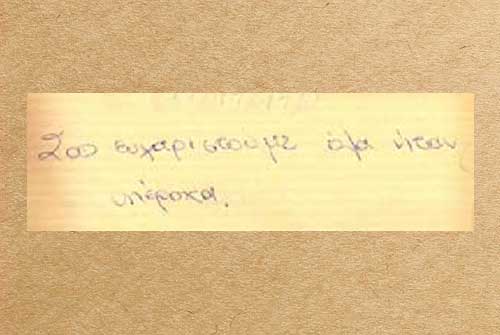 Σας ευχαριστούμε όλα ήταν
υπέροχα.